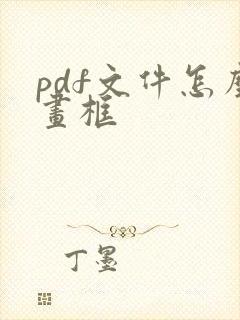 pdf文件怎
畫框
丁墨